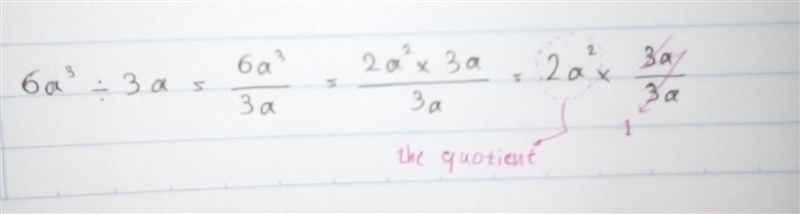 6a³ ÷ 3a = 6a³/3a = 2a² × 3a/3a = 2a² × 3a/3a
the quotient 1